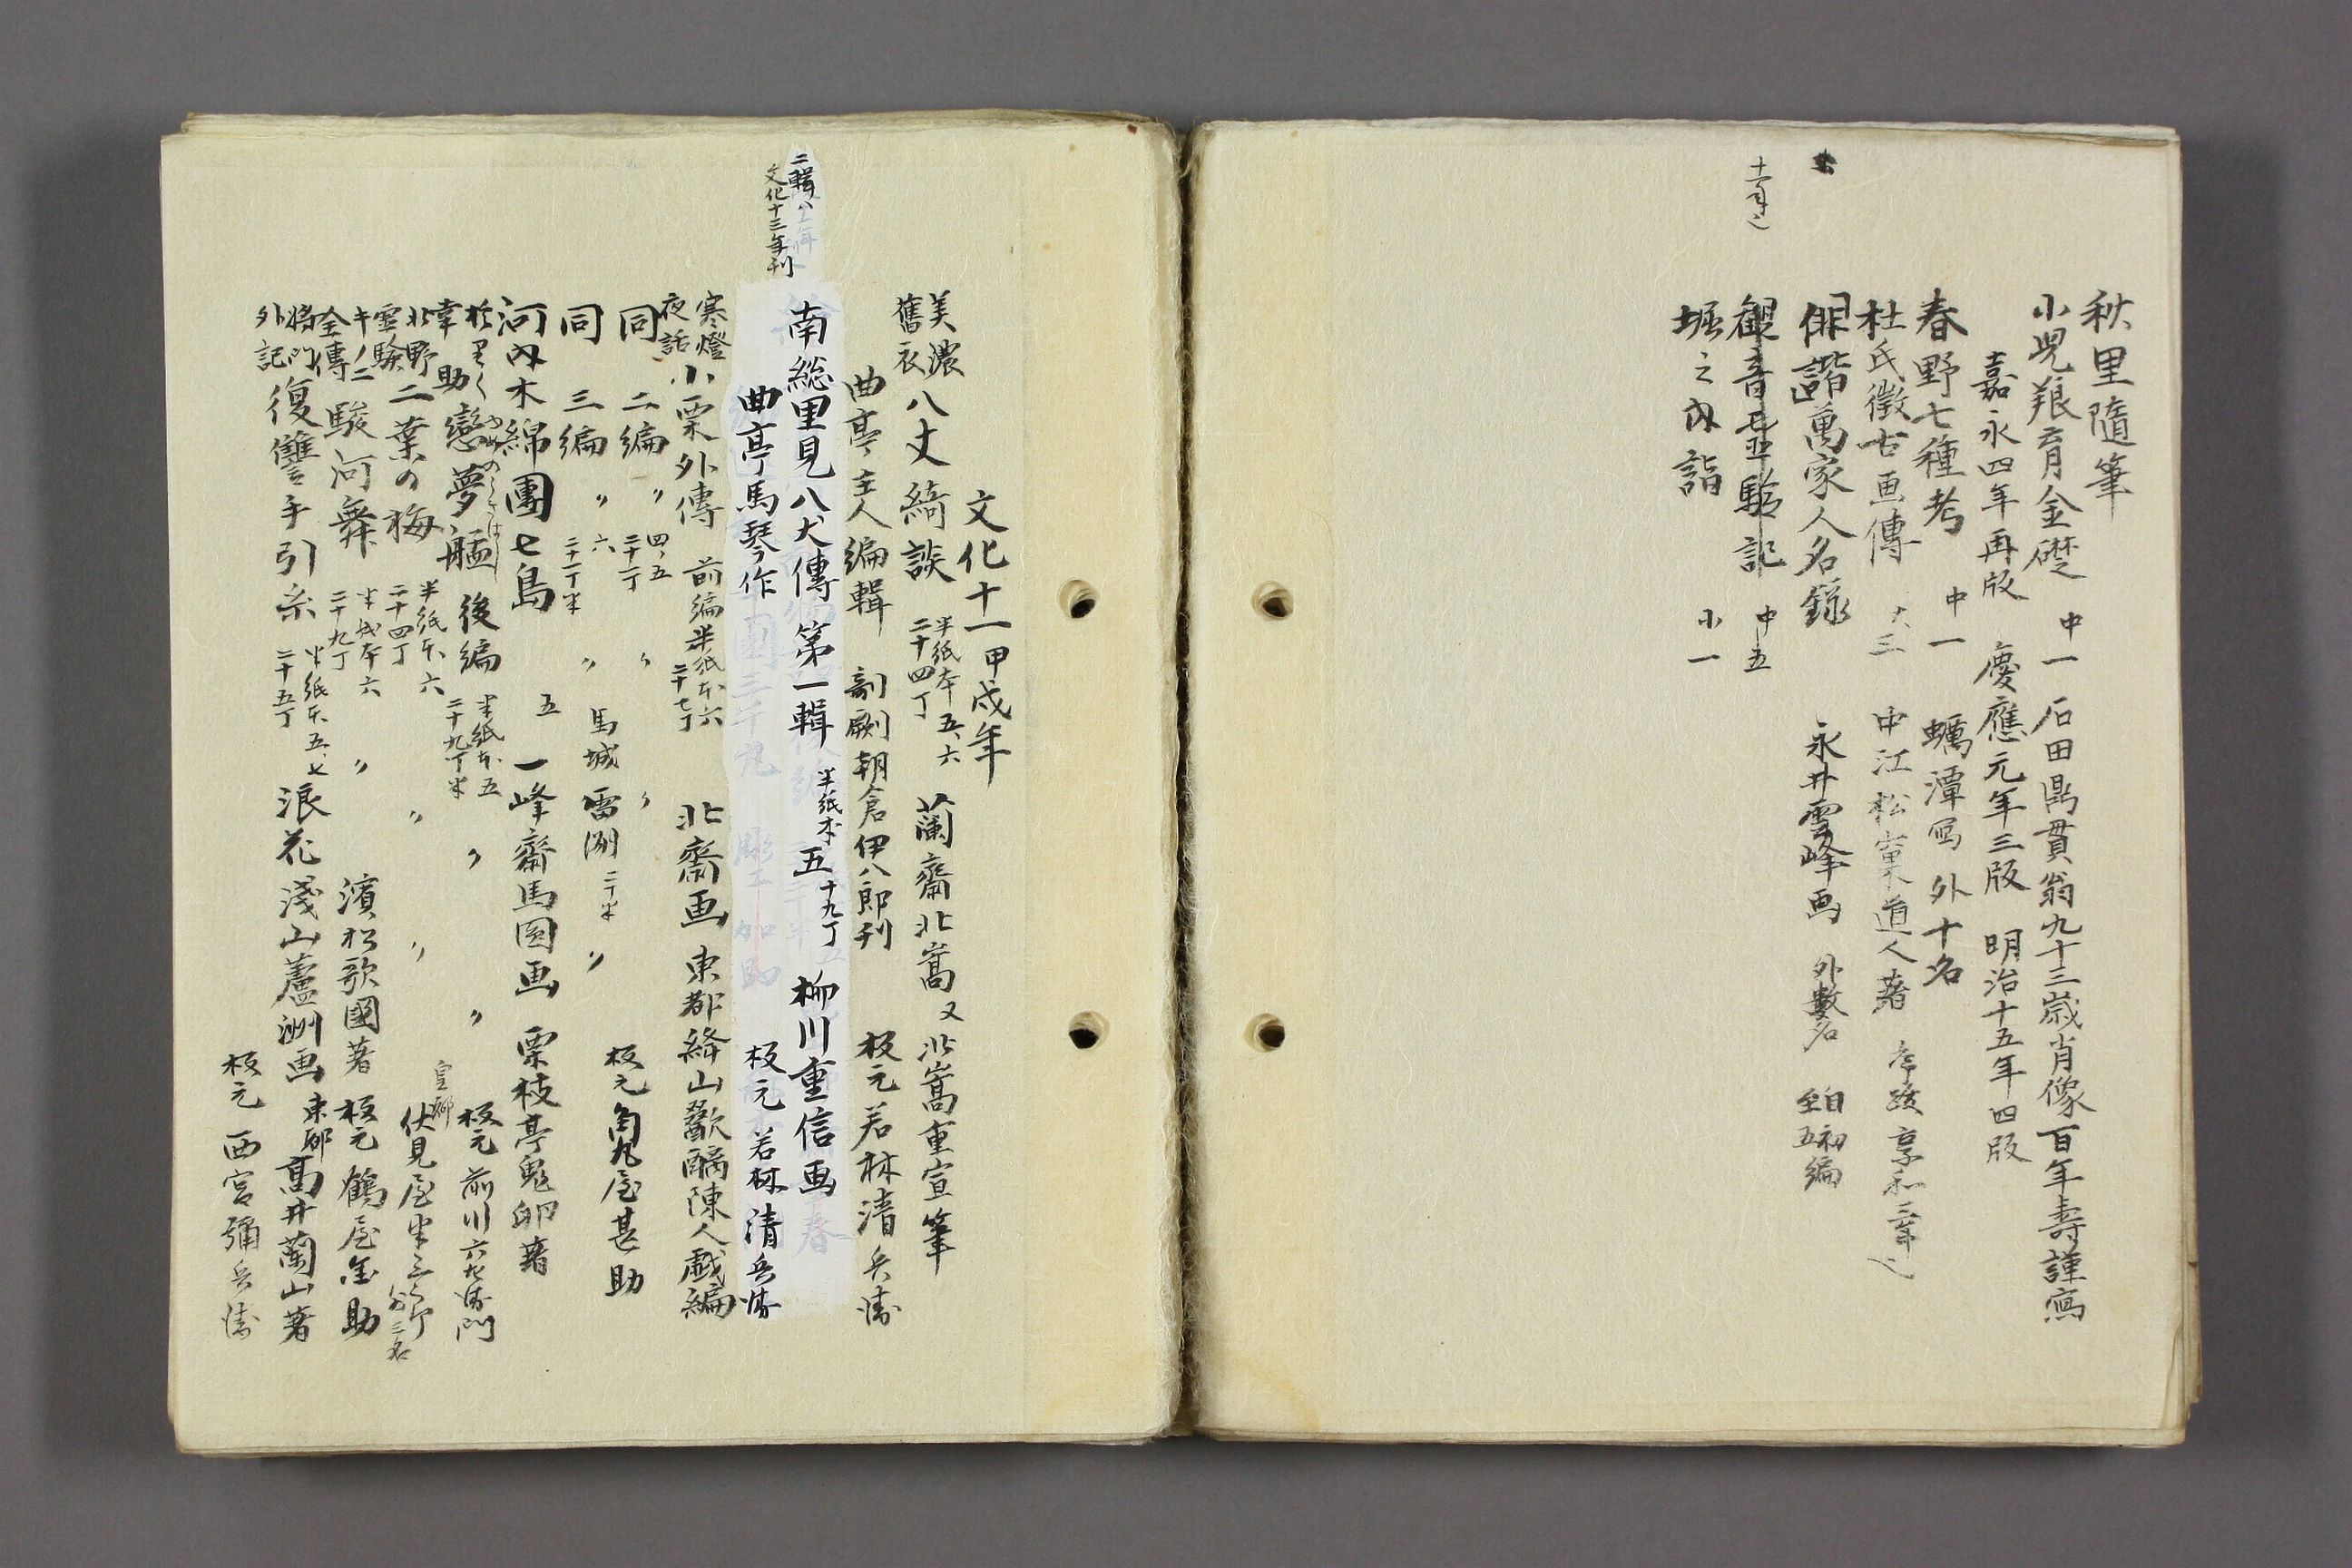 秋里随筆
小児養育金礎 中一 石田鼎貫翁九十三歳肖像百年壽謹寫
嘉永四年再版 慶應元年三版 明治十五年四版
春野七種考 中一 蠣潭寫 外十名
杜氏徴古画傳 大三 中江松窠道人著 序跋享和三年
俳諧萬家人名録 永井雲峰画 外数名 自初編至五編
観音霊験記 中五
堀之内詣 小一
文化十一甲戌年
美濃舊衣 八丈綺談 半紙本五、六 二十四丁 蘭齋北嵩 又 北嵩重宣筆
曲亭主人編輯 剞劂朝倉伊八郎刊 板元若林清兵衛
二輯ハ
文化十三年刊
南総里見八犬傳 第一輯 半紙本五 十九丁 柳川重信画
曲亭馬琴作 板元若林清兵衛
寒燈夜話 小栗外傳 前編 半紙本六 二十七丁 北齋画 東都絳山歠醨陳人戯編
同 二編 〃 四、五 二十一丁 〃 〃 板元角丸屋甚助
同 三編 〃 六 二十一丁半 〃 馬城雷洲 二丁半 〃
河内木綿團七島 五 一峰齋馬圓画 栗枝亭鬼卵著
幸助 戀夢艋 後編 半紙本五 二十九丁半 〃 〃 板元前川六左衛門
北野霊験 二葉の梅 半紙本六 二十四丁 〃 〃 皇都 伏見屋半三郎 外二名
全傳 駿河舞 半紙本六 二十九丁 〃 濱松歌國著 板元鶴屋金助
将門外記 復讐手引糸 半紙本五、七 二十五丁 浪花淺山蘆洲画 東都高井蘭山著
板元 西宮彌兵衛